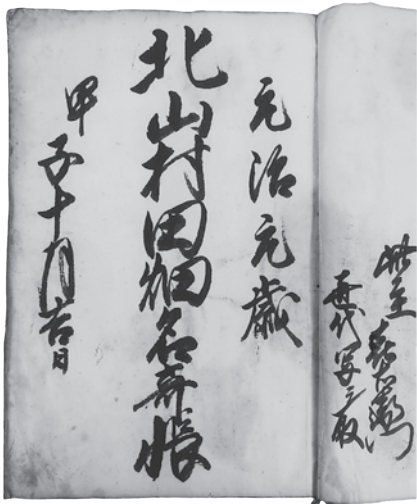 此主
代写
元治元歳
北山村田畑名寄帳
甲子十月吉日